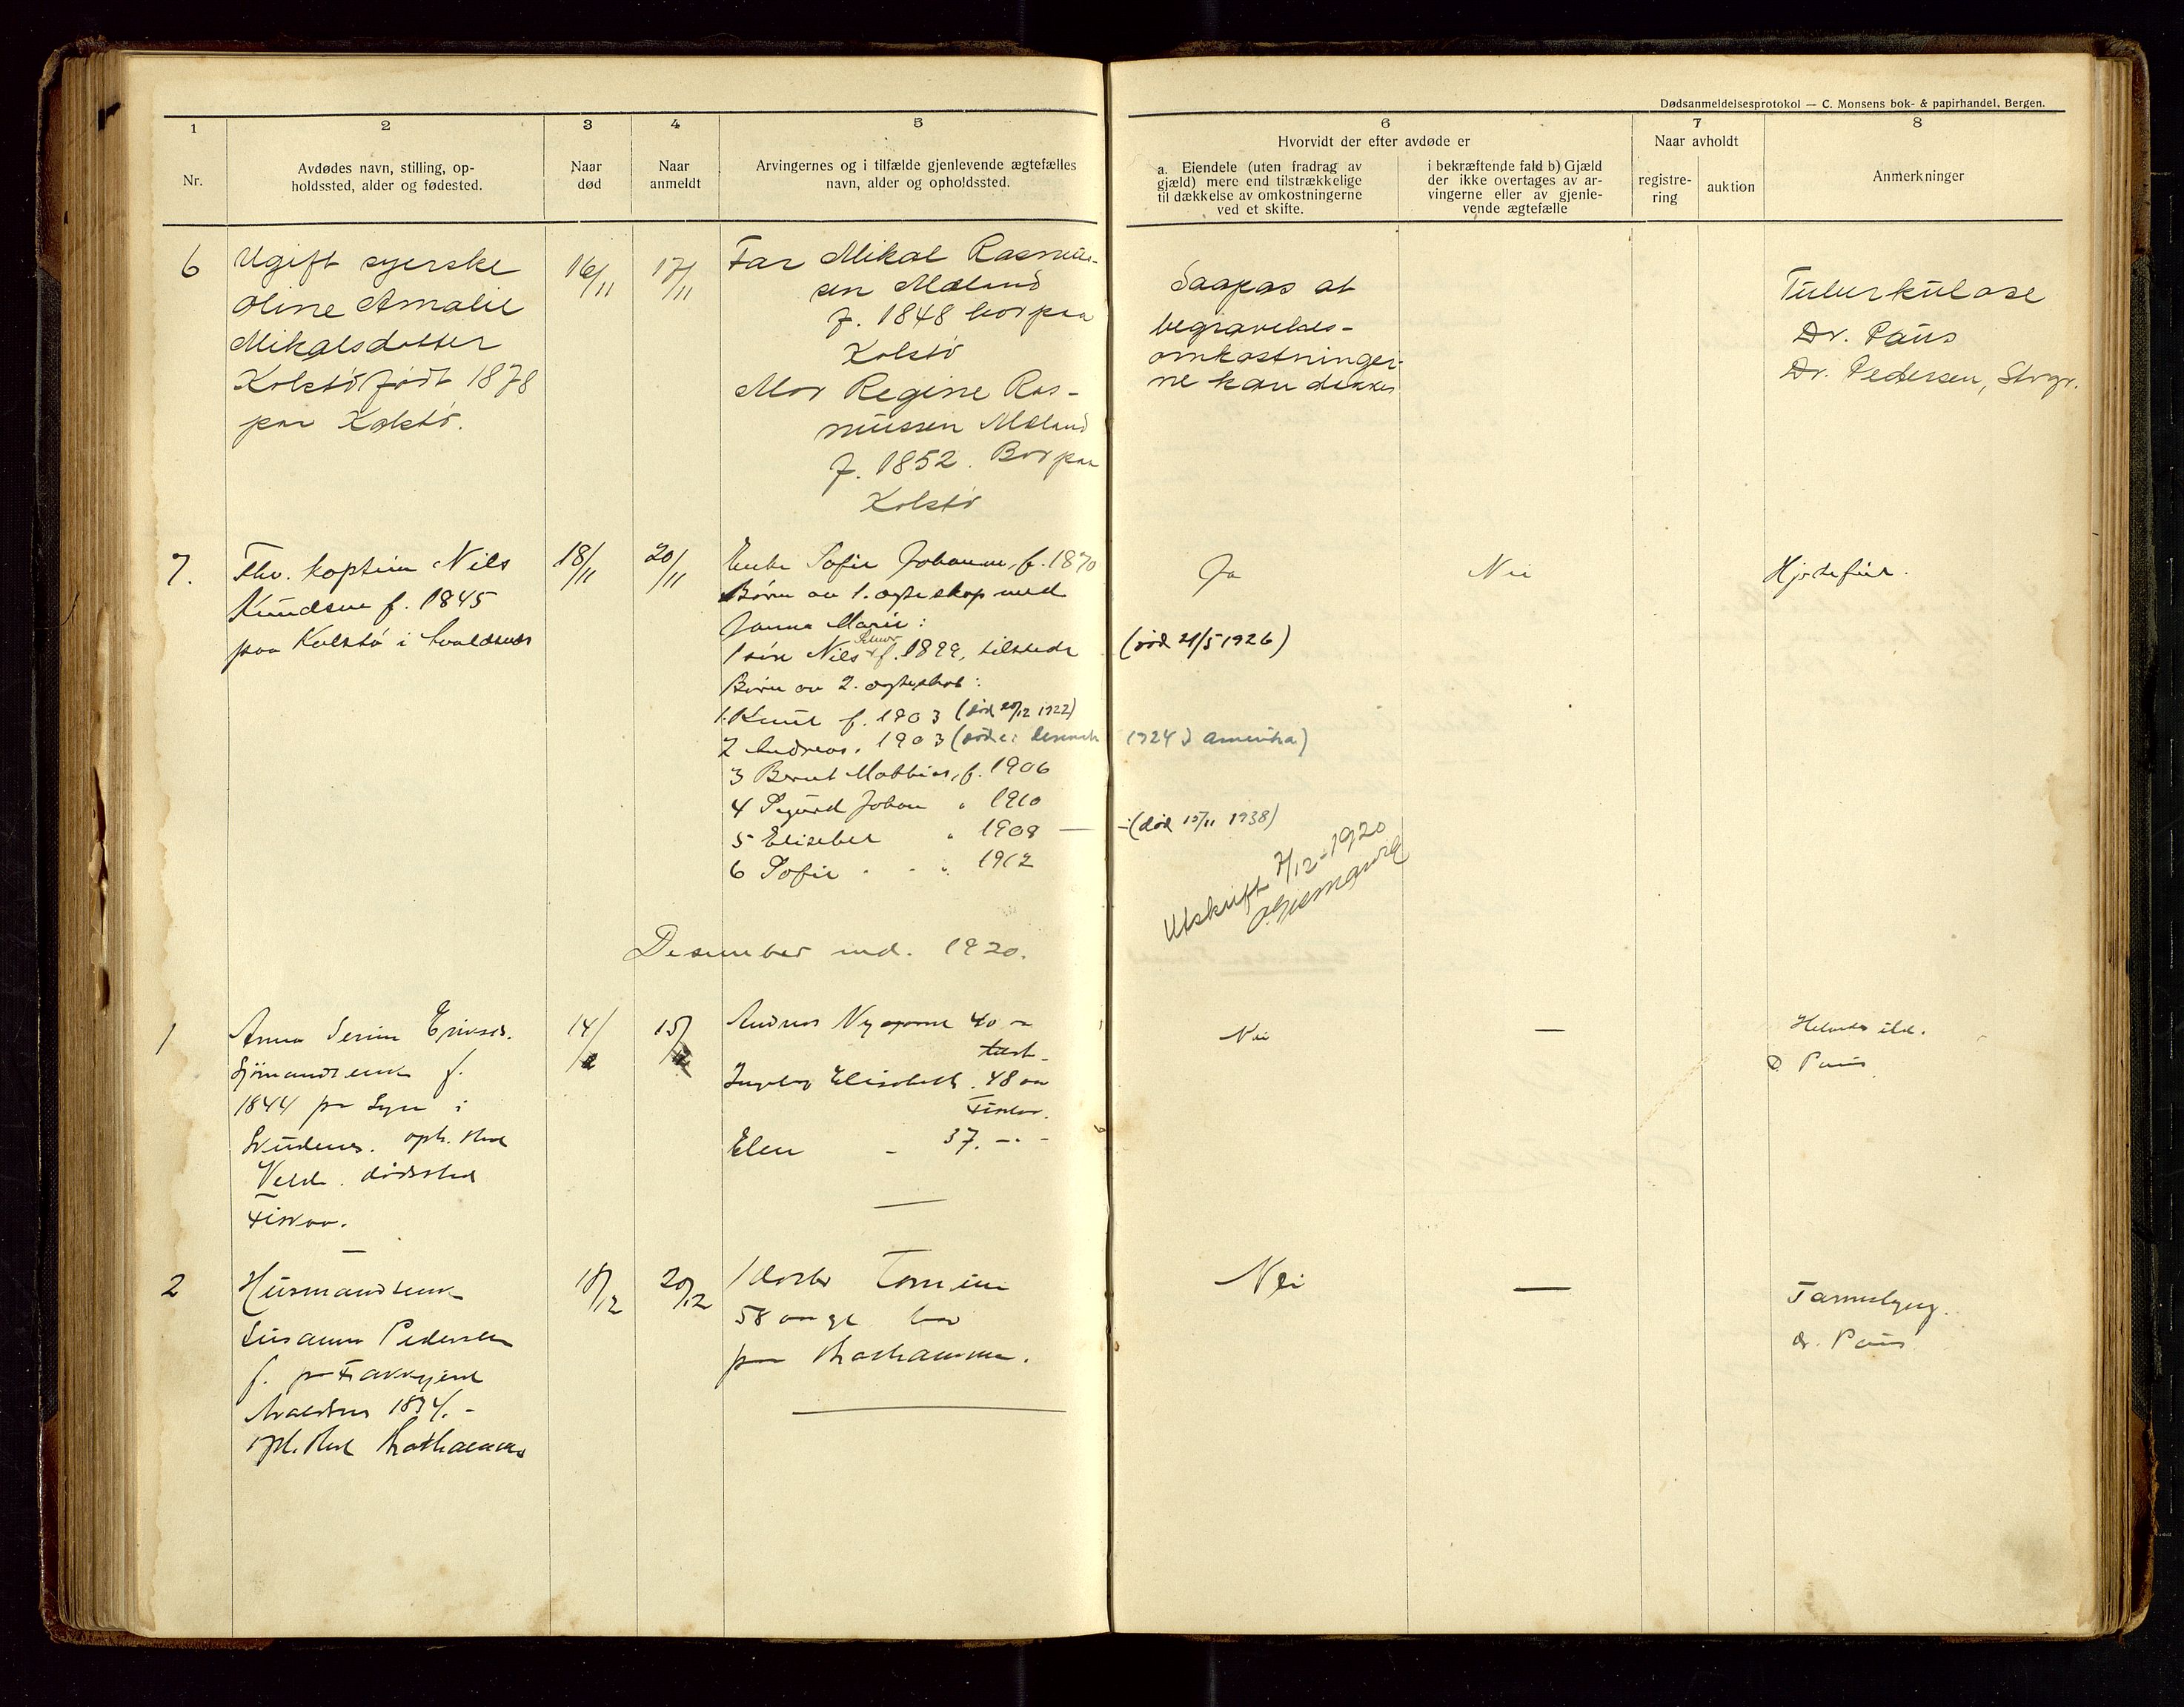 Dødsanmeldelsesprotokol — C. Monsens bok- & papirhandel, Bergen.
1
2
3
4
5
6
7
8
Nr.
Avdødes navn, stilling, op-
holdssted, alder og fødested.
Naar
død
Naar
anmeldt
Arvingernes og i tilfælde gjenlevende ægtefælles
navn, alder og opholdssted.
Hvorvidt der efter avdøde er
a. Eiendele (uten fradrag av
gjæld) mere end tilstrækkelige
til dækkelse av omkostningerne
ved et skifte.
i bekræftende fald b) Gjæld
der ikke overtages av ar-
vingerne eller av gjenle-
vende ægtefælle
Naar avholdt
registre-
ring
auktion
Anmerkninger
6
Ugift syerske
Oline Amalie
Mikalsdatter
Kolstø født 1878
paa Kolstø.
16/11
17/11
Far Mikal Rasmus-
sen Mæland
f. 1848 bor paa
Kolstø
Mor Regine Ras-
mussen Mæland
f. 1852. Bor paa
Kolstø
Saapas at
begravelses-
omkostninger-
ne kan dekkes
Tuberkulose
Dr. Paus
Dr. Pedersen, Stvgr.
7.
Fhv. kaptein Nils
Knudsen f. 1845
paa Kolstø i Avaldsnes
18/11
20/11
Enke Sofie Johanne, f. 1870
Børn av 1. egteskap med
Janna Marie:
1 søn Nils f. 1899, tilstede
(død 21/5 1926)
Børn av 2. egteskab:
1. Knut f. 1903 (død 20/12 1922)
2 Andreas. 1903 (døde i 1924 i Amerika)
3 Bernt Mathias, f. 1906
4 Sigurd Johan " 1910
5 Elisebet " 1908 — (død 15/11 1938)
6 Sofie " 1912
Ja
Nei
Hjertefeil.
Utskrift 7/12-1920
Desember md. 1920.
1
Anna Serine Eriksd.
Sjømandsenke f.
1844 pa Syre i
Skudenes. oph. sted
Velde. dødssted
Fiskaa.
14/12
15/12
Andreas 40 aa
Ingeborg Elisabeth. 48 aa
Fiskaa.
Elen - 37. - -
Nei
—
Dr Paus
2
Husmandsenke
Susanna Pedersen
f. pa Fakkjeind
Avaldsnes 1834. -
oph. sted
18/12
20/12
1 datter Tomine
58 aar gl bor
paa
Nei
—
Tarmslyng.
dr. Paus